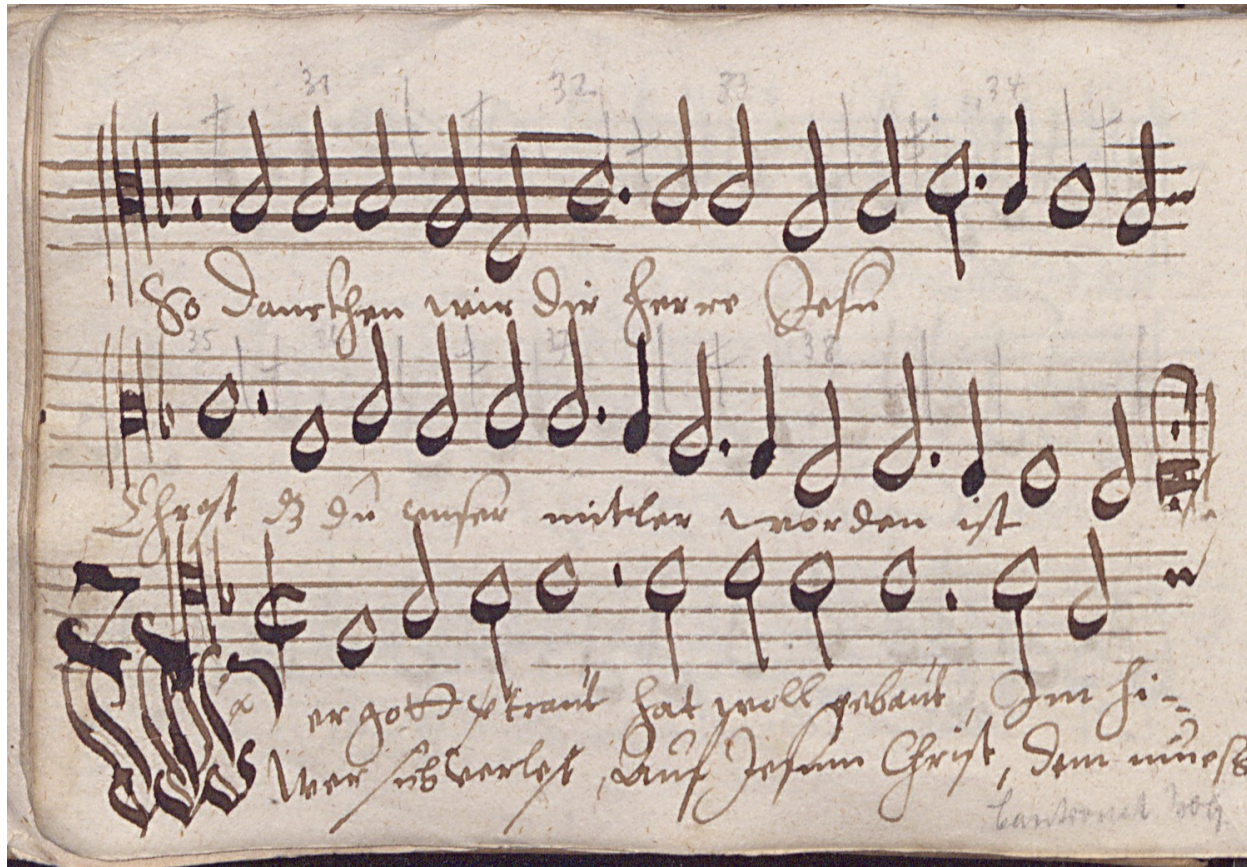 31 32 33 34
So danckhen wir dir Herre Jesu
35 36 37 38
Christ dz du unser mitler worden ist
Wer gott vertraut hat woll gebaut, Im hi-
Wer sich verlest, auf Jesum Christ, dem muess